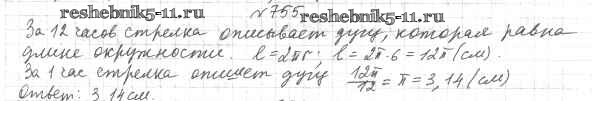 reshebnik5-11.ru №755 reshebnik5-11.ru
За 12 часов стрелка описывает дугу, которая равна
длине окружности. l=2πr; l=2π·6=12π(см).
За 1 час стрелка опишет дугу 12π/12=π=3,14(см)
Ответ: 3,14см.